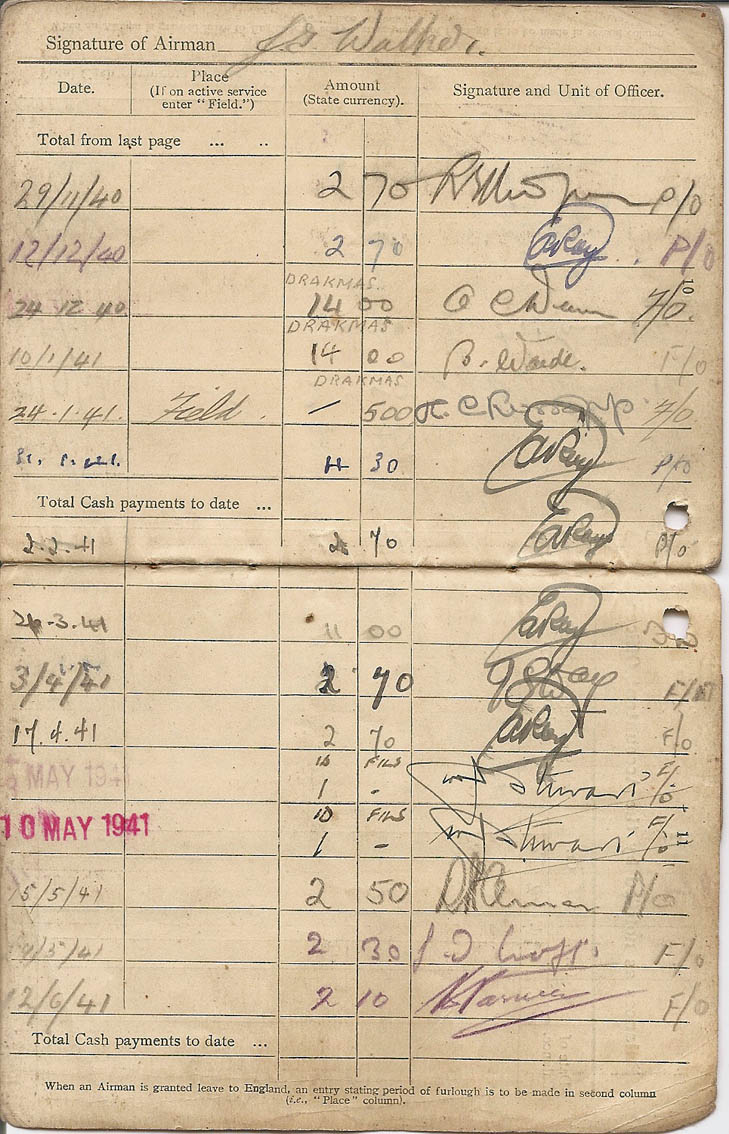 Signature of Airman J.G. Walker.
Date. Place (If on active service enter "Field.") Amount (State currency). Signature and Unit of Officer.
Total from last page ... ..
29/11/40 2 70 P/O
12/12/40 2 70 P/O
10
DRAKMAS
24 12 40 14 00 F/O.
DRAKMAS
10/1/41 14 00 B. Warde. F/O
DRAKMAS
24.1.41. Field. / 500 F/O
4 30 P/O
Total Cash payments to date ...
2.2.41 70 P/O
.3.41 11 00
3/4/41 2 70 F/
17.4.41 2 70 F/O
MAY 194 ID FILS
1 - Stuart F/O
10 MAY 1941 ID FILS
1 - Stuart F/O
11
15/5/41 2 50 P/O
/5/41 2 30 F/O
12/6/41 2 10 F/O
Total Cash payments to date ...
When an Airman is granted leave to England, an entry stating period of furlough is to be made in second column
(i.e., "Place" column).